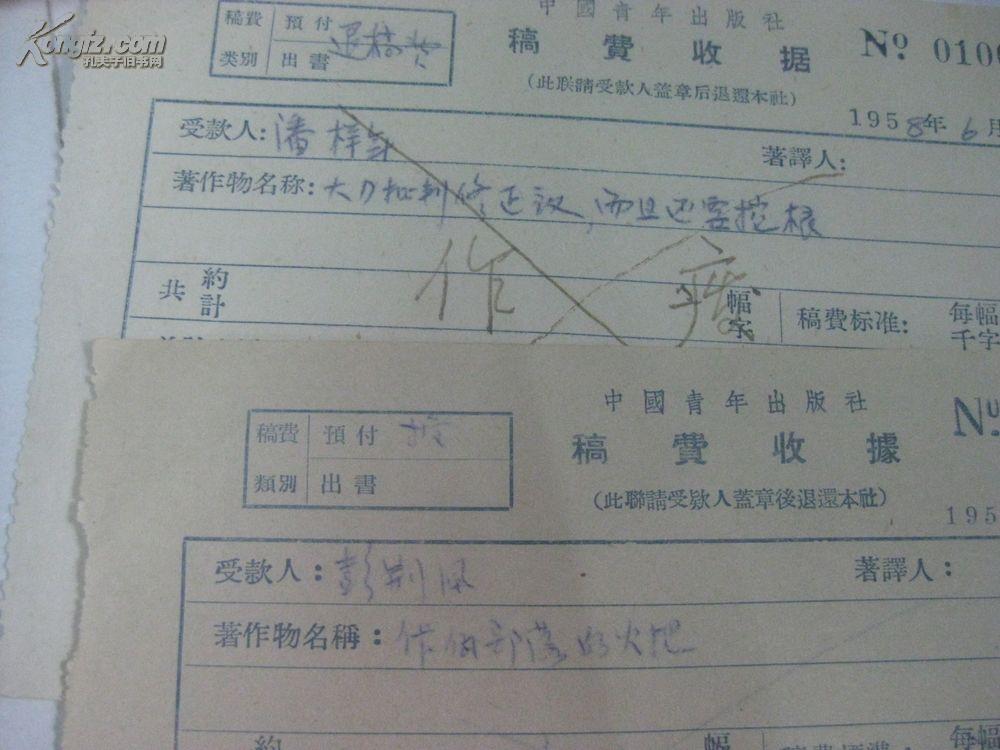 Kongfz.com
孔夫子旧书网
中國青年出版社
稿費 預付 退稿費
类别 出書
稿費收据
№ 0100
(此联請受款人蓋章后退還本社)
1958年6月
受款人: 潘梓年
著譯人:
著作物名称: 大力批判修正主义, 而且还要挖根
作廢
共 約計
幅字
稿費标准: 每幅千字
中國青年出版社
稿費 預付
類別 出書
稿費收據
№
(此聯請受款人蓋章後退還本社)
195
受款人: 彭荆风
著譯人:
著作物名稱: 佧佤部落的火把
約
幅
每幅